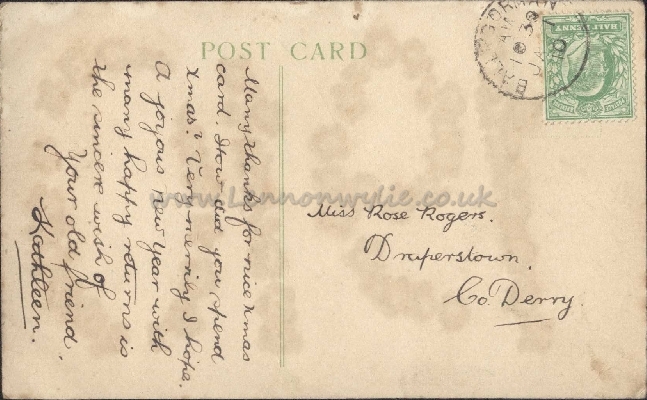 POST CARD
HALF PENNY
Many thanks for nice Xmas
card. How did you spend
Xmas? Very merrily I hope.
A joyous New Year with
many happy returns is
the sincere wish of
Your old friend.
Kathleen.
Miss Rose Rogers.
Draperstown.
Co. Derry.
www.Lennonwylie.co.uk